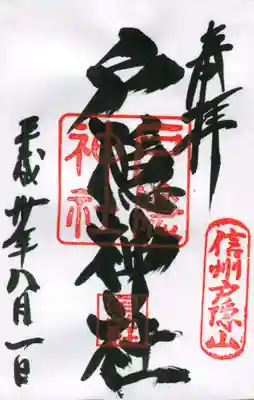 奉拝
信州戸隠山
戸隠神社
戸隠
神社
平成卅年八月一日